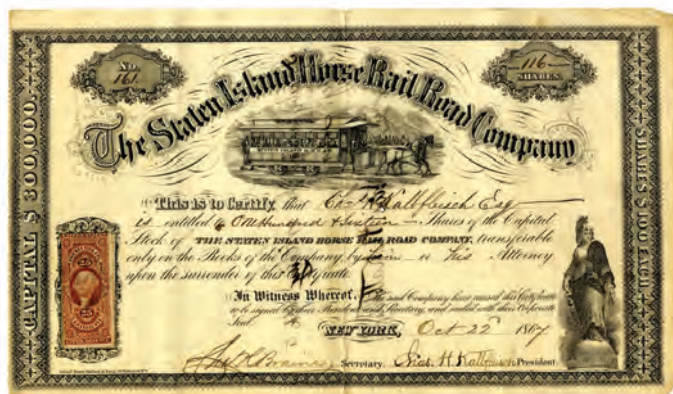 No.
161.
116
SHARES.
The Staten Island Horse Rail Road Company
CAPITAL $ 300,000.
SHARES $ 100 EACH
This is to Certify, that Chas H Kalbfleisch Esq
is entitled to One Hundred & Sixteen Shares of the Capital
Stock of THE STATEN ISLAND HORSE RAIL ROAD COMPANY, transferable
only on the Books of the Company by him or His Attorney
upon the surrender of this Certificate
In Witness Whereof, The said Company have caused this Certificate
to be signed by their President and Secretary, and sealed with their Corporate
Seal
NEW YORK, Oct 22 1867
Secretary, Chas. H. Kalbfleisch President.
25
25